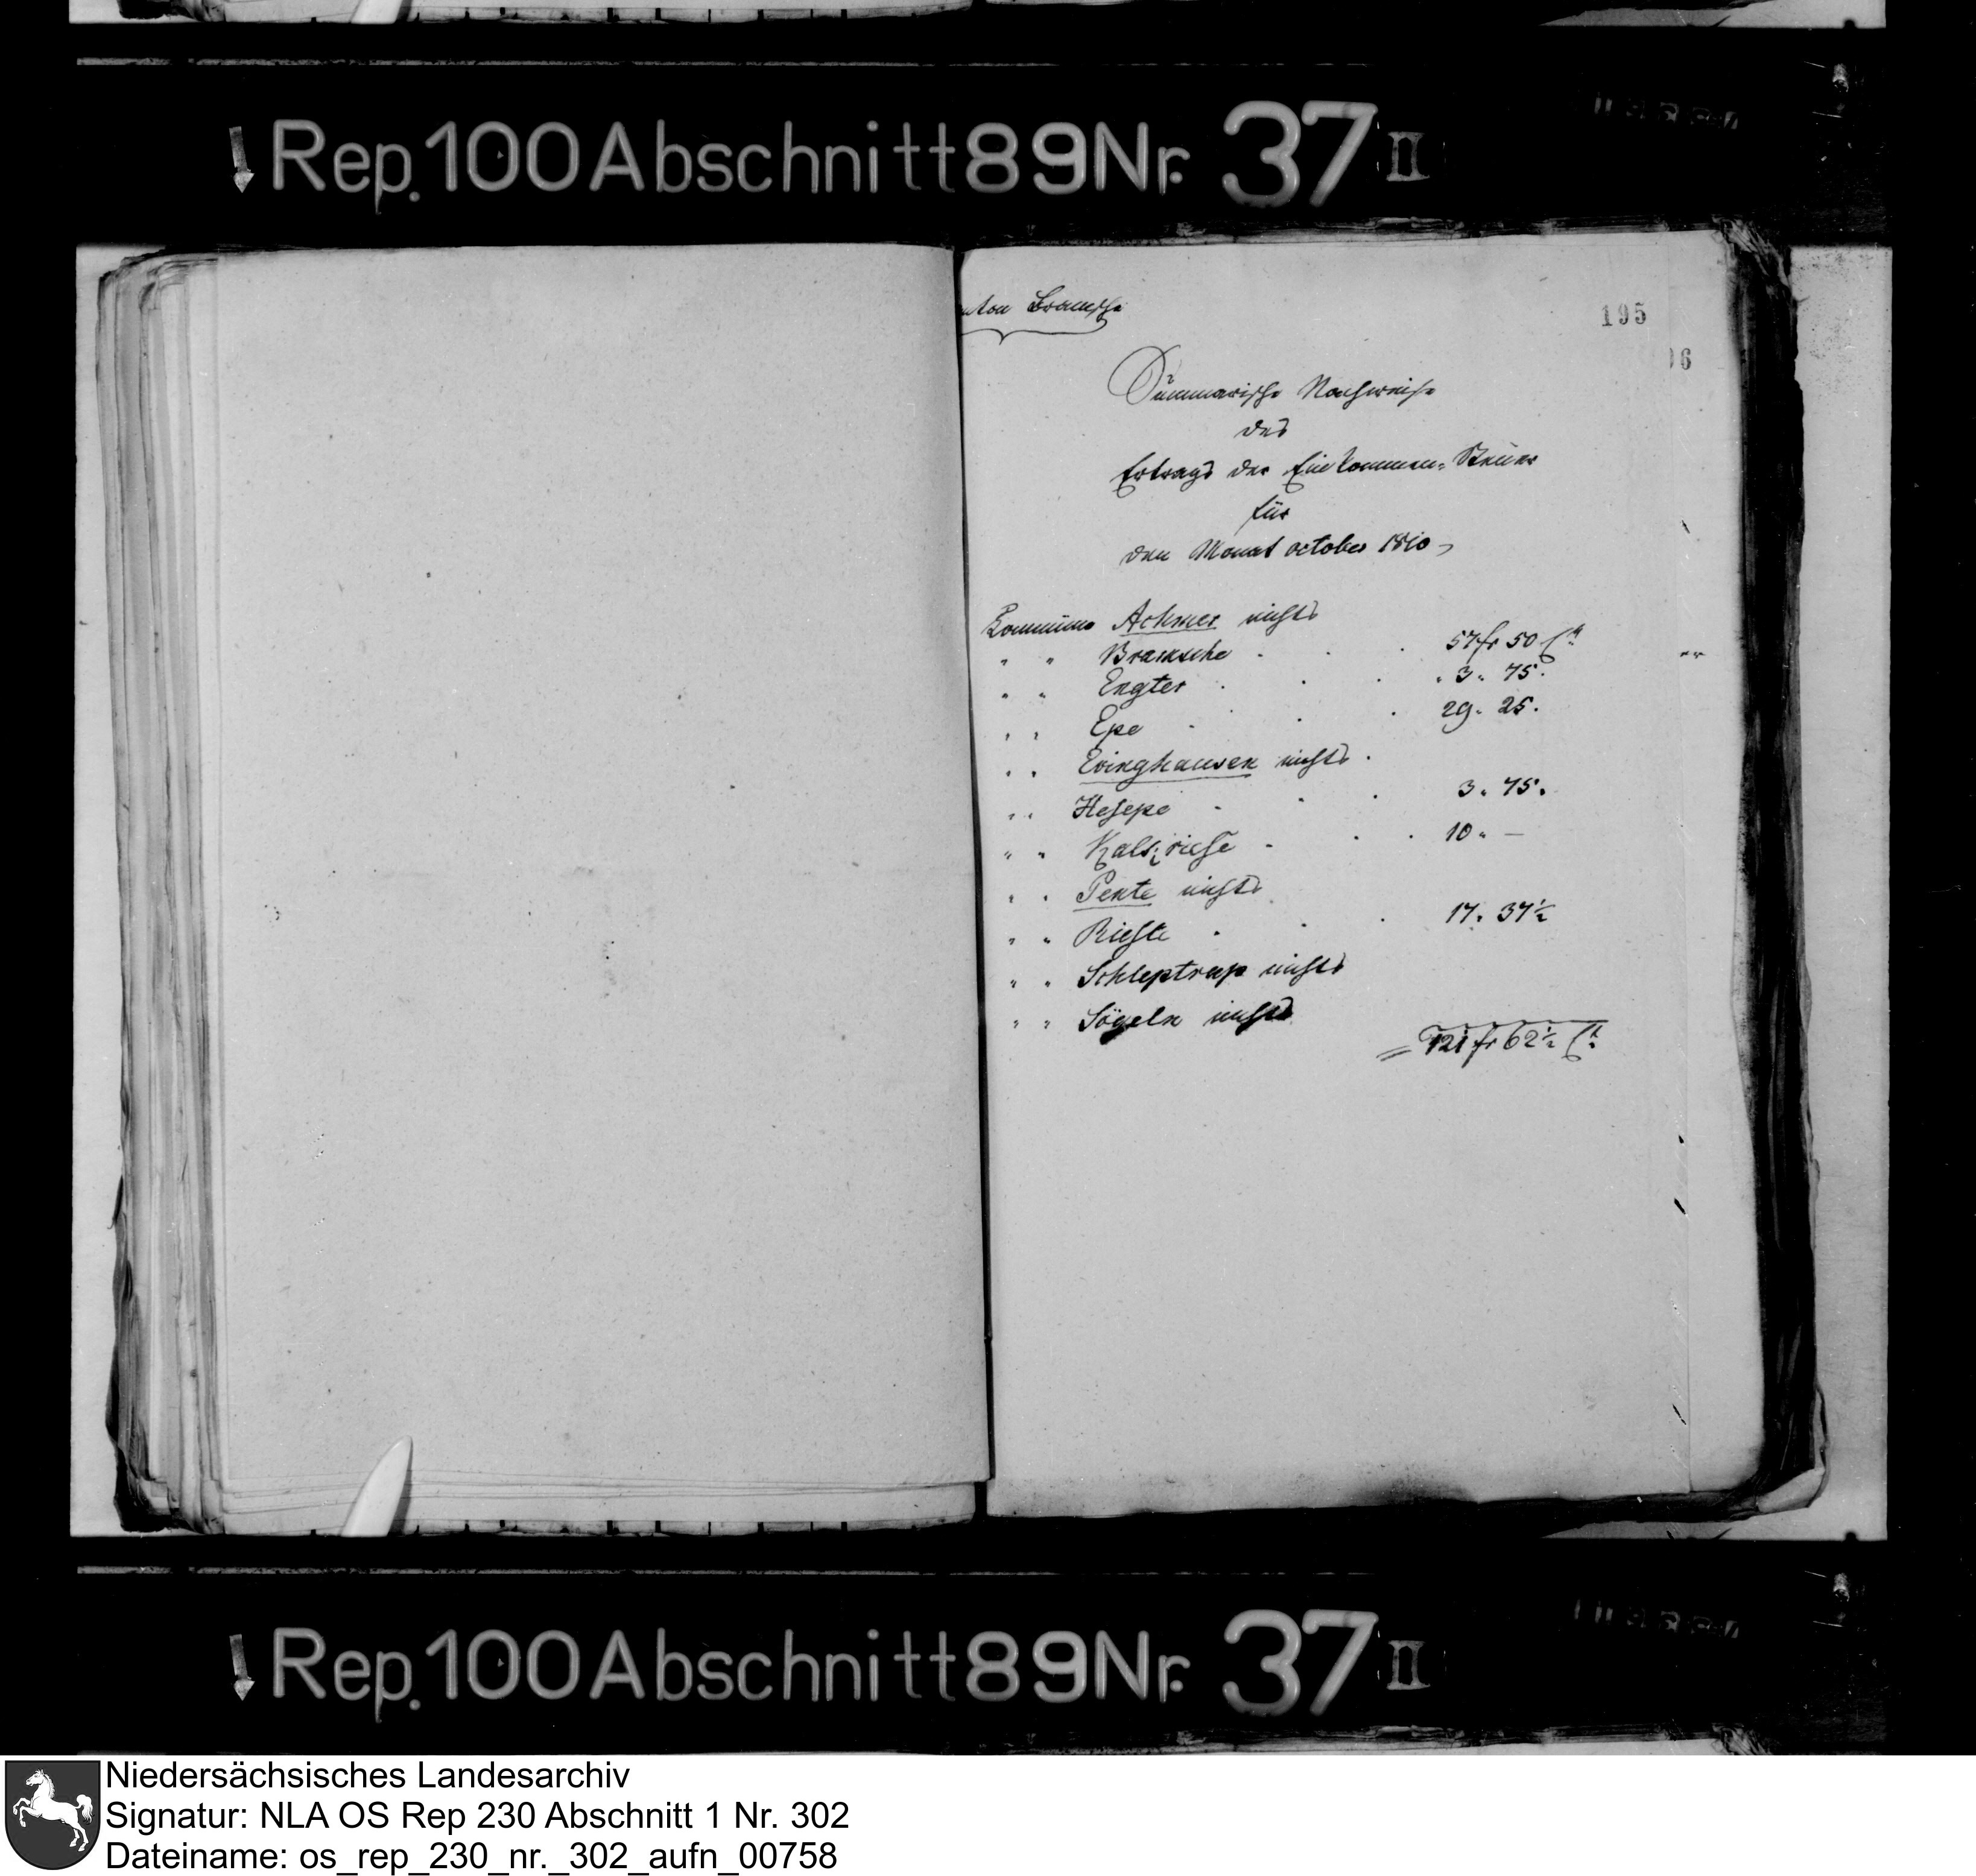 Rep. 100 Abschnitt 89 Nr. 37 II
Canton Bramsche
195
Summarische Nachweise
des
Ertrags der Einkommen-Steuer
für
den Monat october 1810
Kommüne Achmer nichts
" " Bramsche . . . 57 fr 50 Ct
" " Engter . . . " 3 " 75.
" " Epe . . . 29. 25.
" " Evinghausen nichts .
" " Hesepe . . . 3 " 75.
" " Kalkriese . . . 10 " —
" " Pente nichts
" " Rieste . . . 17. 37½
" " Schleptrup nichts
" " Sögeln nichts
= 121 fr 62½ Ct
Rep. 100 Abschnitt 89 Nr. 37 II
Niedersächsisches Landesarchiv
Signatur: NLA OS Rep 230 Abschnitt 1 Nr. 302
Dateiname: os_rep_230_nr._302_aufn_00758